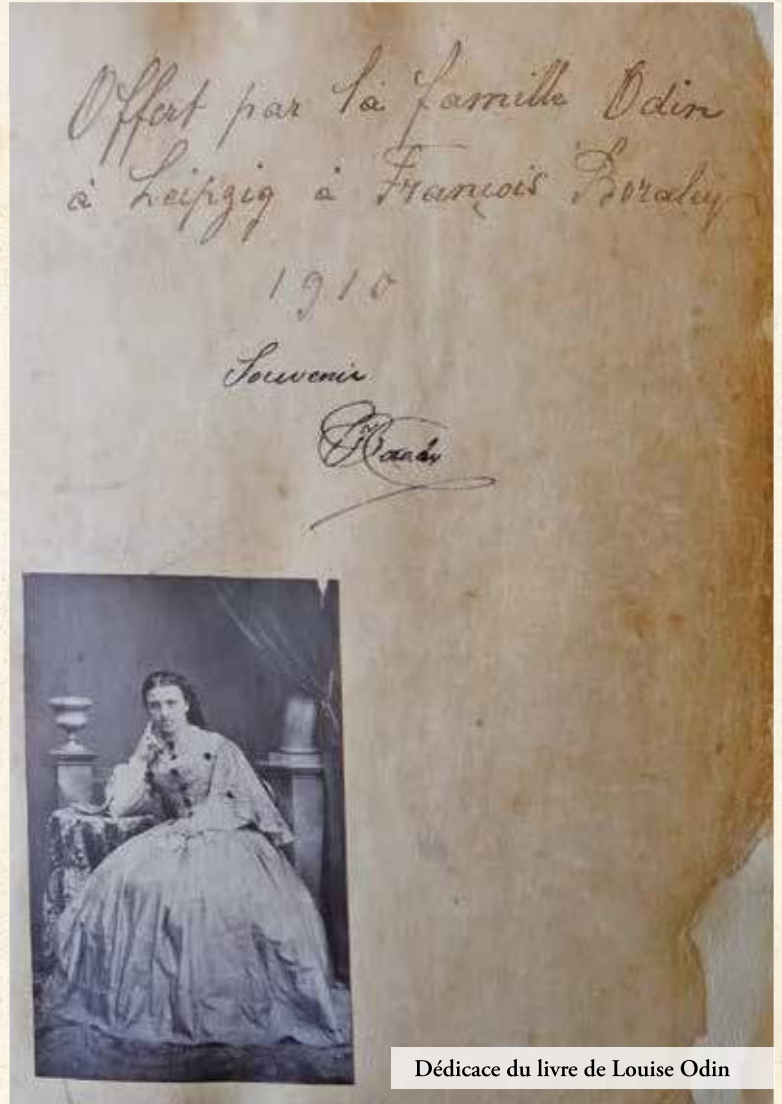 Offert par la famille Odin
à Leipzig à François
1910
Souvenir
Dédicace du livre de Louise Odin